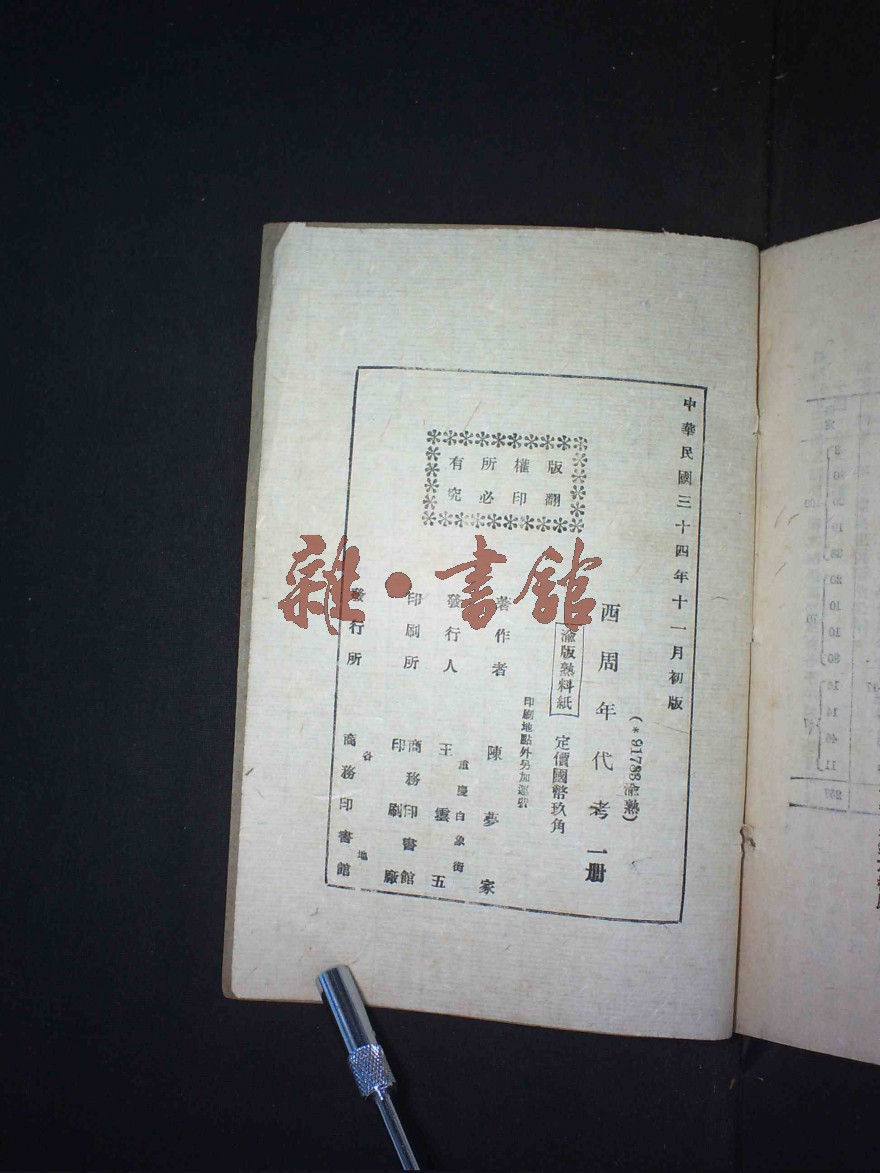 中華民國三十四年十一月初版
(*91788渝熟)
西周年代考一册
渝版熟料紙
定價國幣玖角
印刷地點外另加運費
版權所有
翻印必究
著作者
陳夢家
發行人
重慶白象街
王雲五
印刷所
商務印書館
印刷廠
發行所
各地
商務印書館
雜·書館